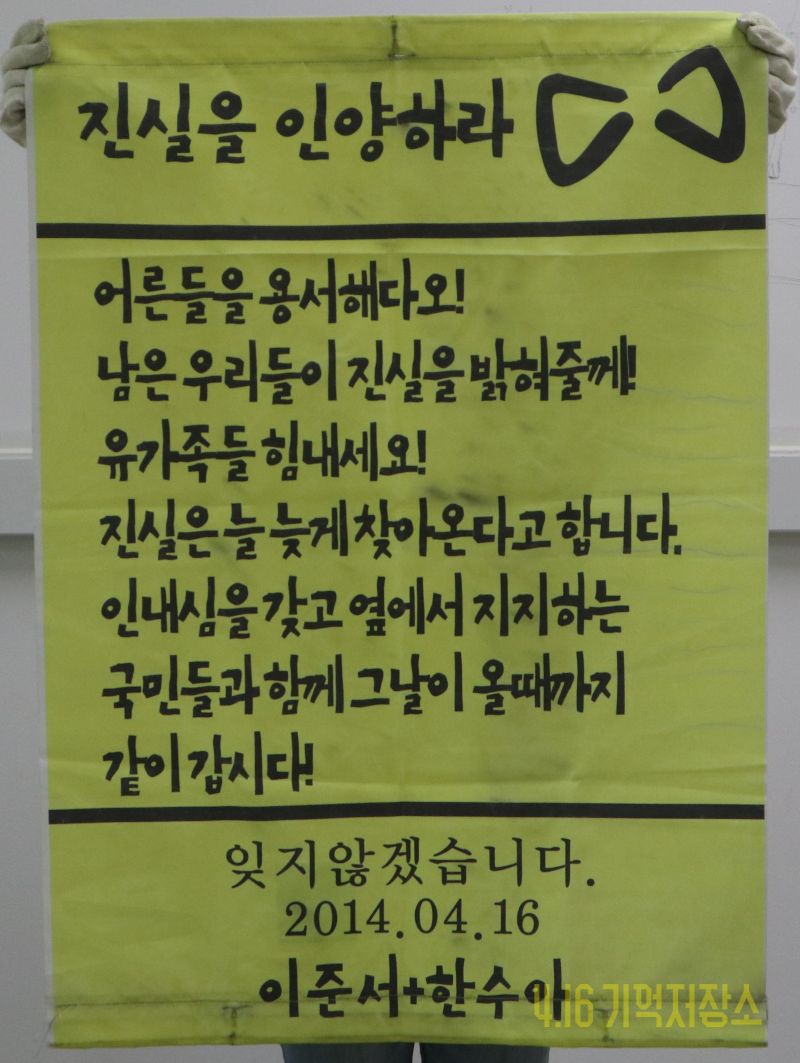 진실을 인양하라
어른들을 용서해다오!
남은 우리들이 진실을 밝혀줄께!
유가족들 힘내세요!
진실은 늘 늦게 찾아온다고 합니다.
인내심을 갖고 옆에서 지지하는
국민들과 함께 그날이 올때까지
같이 갑시다!
잊지않겠습니다.
2014.04.16
이준서+한수아
4.16 기억저장소